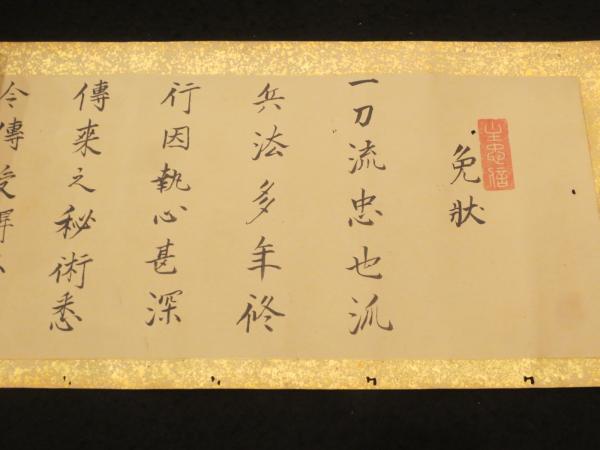 主忠信
免状
一刀流忠也派
兵法多年修
行因執心甚深
傳来之秘術悉
令傳受